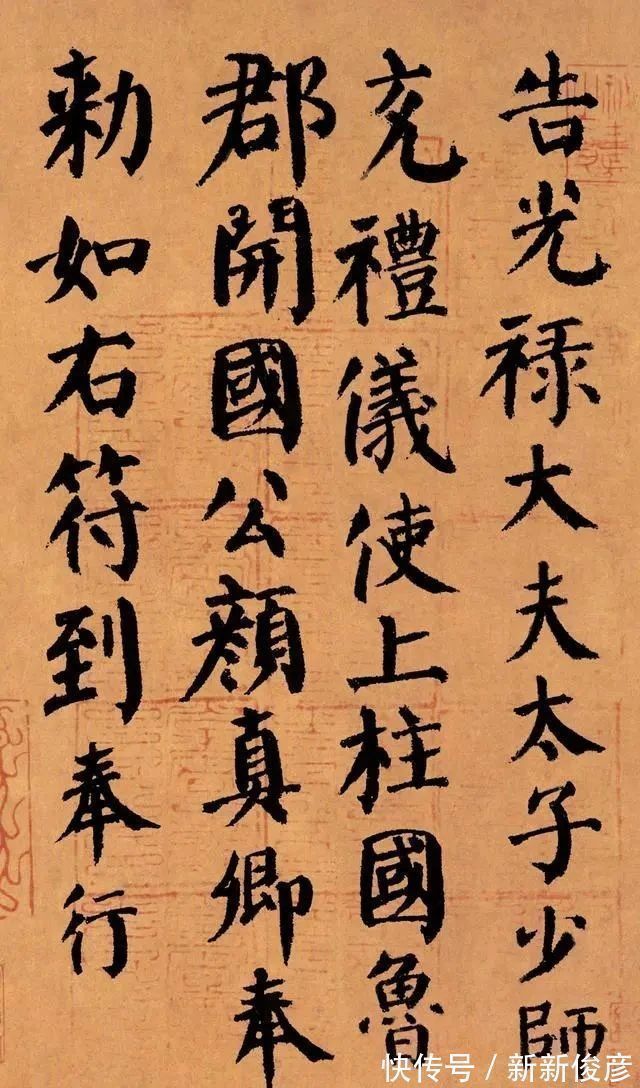 告光禄大夫太子少師
充禮儀使上柱國魯
郡開國公顏真卿奉
勅如右符到奉行
快传号/新新俊彦